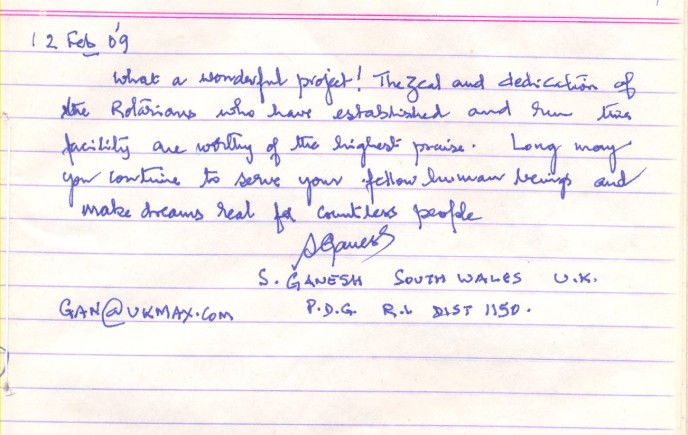 12 Feb 09
What a wonderful project! The zeal and dedication of
the Rotarians who have established and run this
facility are worthy of the highest praise. Long may
you continue to serve your fellow human beings and
make dreams real for countless people
SGanesh
S. GANESH SOUTH WALES U.K.
GAN@UKMAX.COM P.D.G. R.I. DIST 1150.